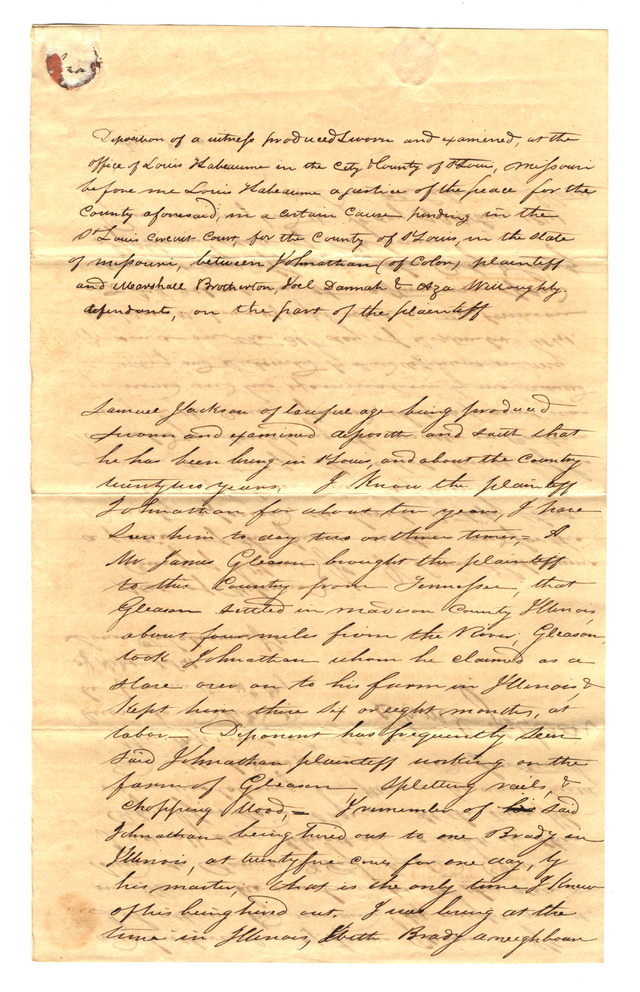 Deposition of a witness produced sworn and examined, at the
office of Louis Labeaume in the City & County of St Louis, Missouri
before me Louis Labeaume a justice of the peace for the
County aforesaid, in a certain cause pending in the
St Louis Circuit Court, for the County of St Louis, in the state
of Missouri, between Johnathan (of Color) plaintiff
and Marshall Brotherton, Joel Dannah & Aza Willoughby.
defendants, on the part of the plaintiff
Samuel Jackson of lawful age being produced
sworn and examined deposeth and saith that
he has been living in St Louis, and about the County
twenty two years, I know the plaintiff
Johnathan for about ten years, I have
seen him to day two or three times,- A
Mr James Gleason brought the plaintiff
to this Country from Tennessee, that
Gleason settled in Madison County Illinois,
about four mile from the River, Gleason,
took Johnathan whom he claimed as a
slave over on to his farm in Illinois &
kept him there six or eight months, at
labor— Deponent has frequently seen
said Johnathan plaintiff working on the
farm of Gleason, splitting rails, &
Chopping Wood,— I remember of said
Johnathan being hired out to one Brady in
Illinois, at twenty five cents for one day, by
his master, that is the only time I knew
of his being hired out. I was living at the
time in Illinois, With Brady a neighbour